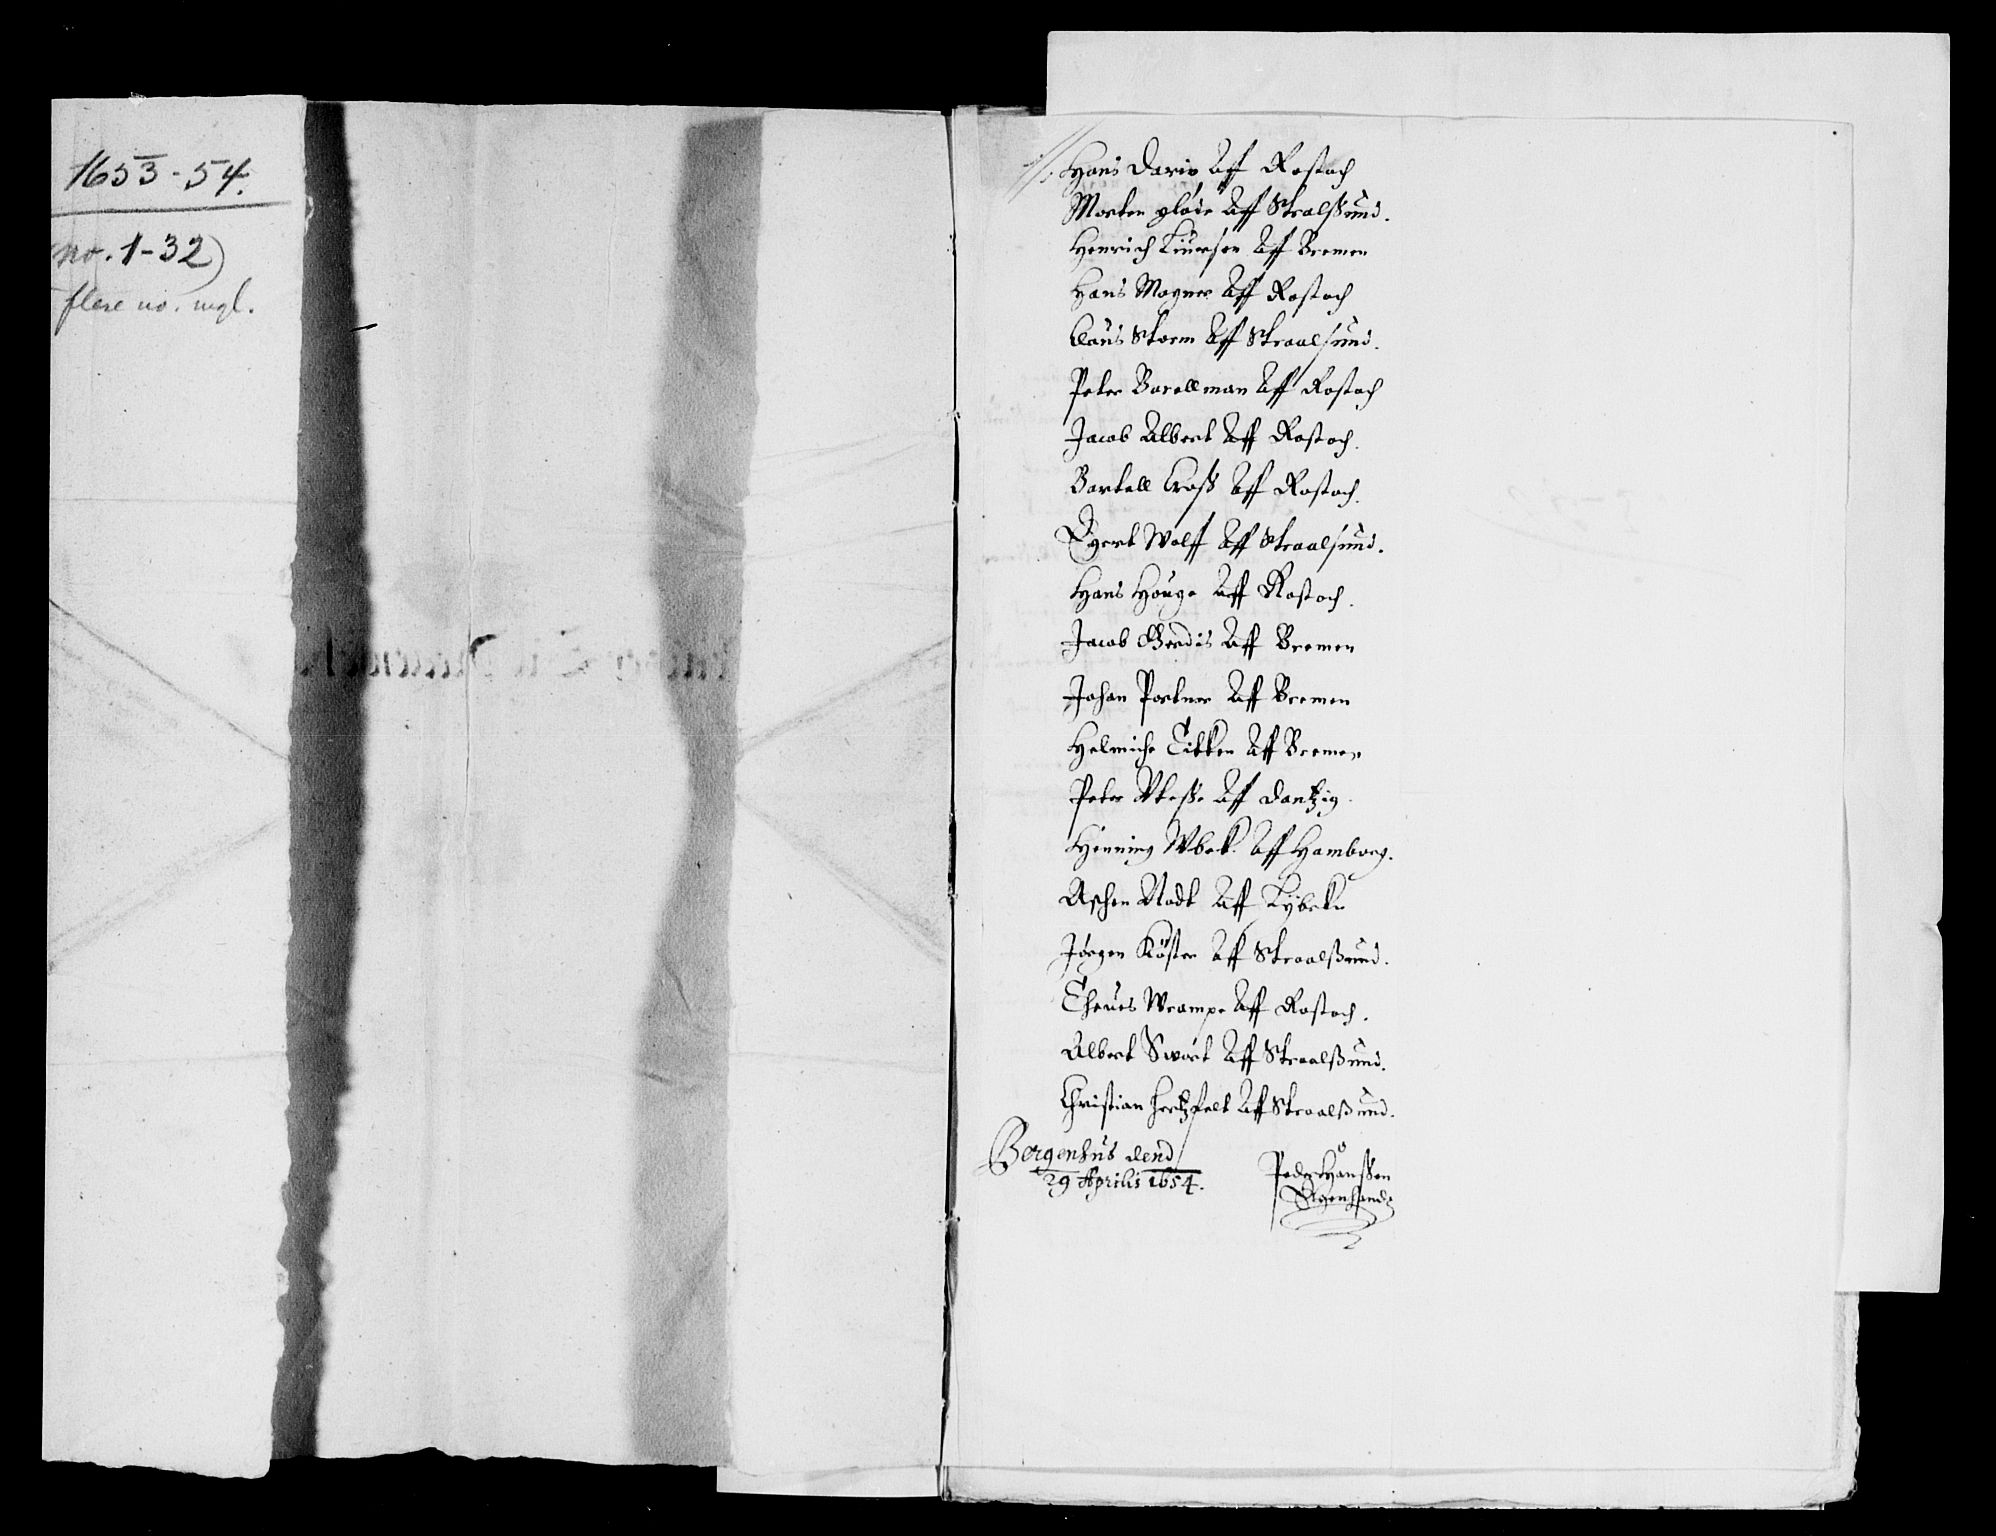 1653-54.
no. 1-32)
flere no. mgl.
Hans Dario Aff Rostoch
Morten gløde Aff Stralßund.
Henrich Liursen Aff Bremen
Hans Magner Aff Rostoch
Claus Storm Aff Straalsund.
Peter Barellman Aff Rostoch
Jacob Albert Aff Rostoch.
Bartell Croß Aff Rostoch.
Egert Wolff Aff Straalsund.
Hans Houge Aff Rostoch.
Jacob Gerdis Aff Bremen
Johan Portner Aff Bremen
Helmiche Tibken Aff Bremen
Peter Aff Dantzig
Henning Aff Hamborg.
Aschen Aff Lybeke
Jørgen Køster Aff Straalßund.
Theues Wrampe Aff Rostoch.
Albert Swort Aff Straalßund.
Christian Hertzfelt Aff Straalßund.
Bergenhus dend
29 Aprilis 1654.
Peder Hanßen
Egenhand